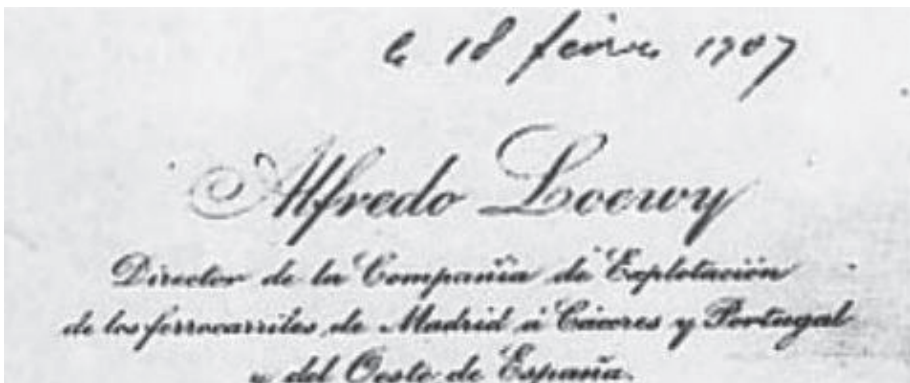 le 18 février 1907
Alfredo Loewy
Director de la Compañia de Explotación
de los ferrocarriles de Madrid á Cáceres y Portugal
y del Oeste de España.